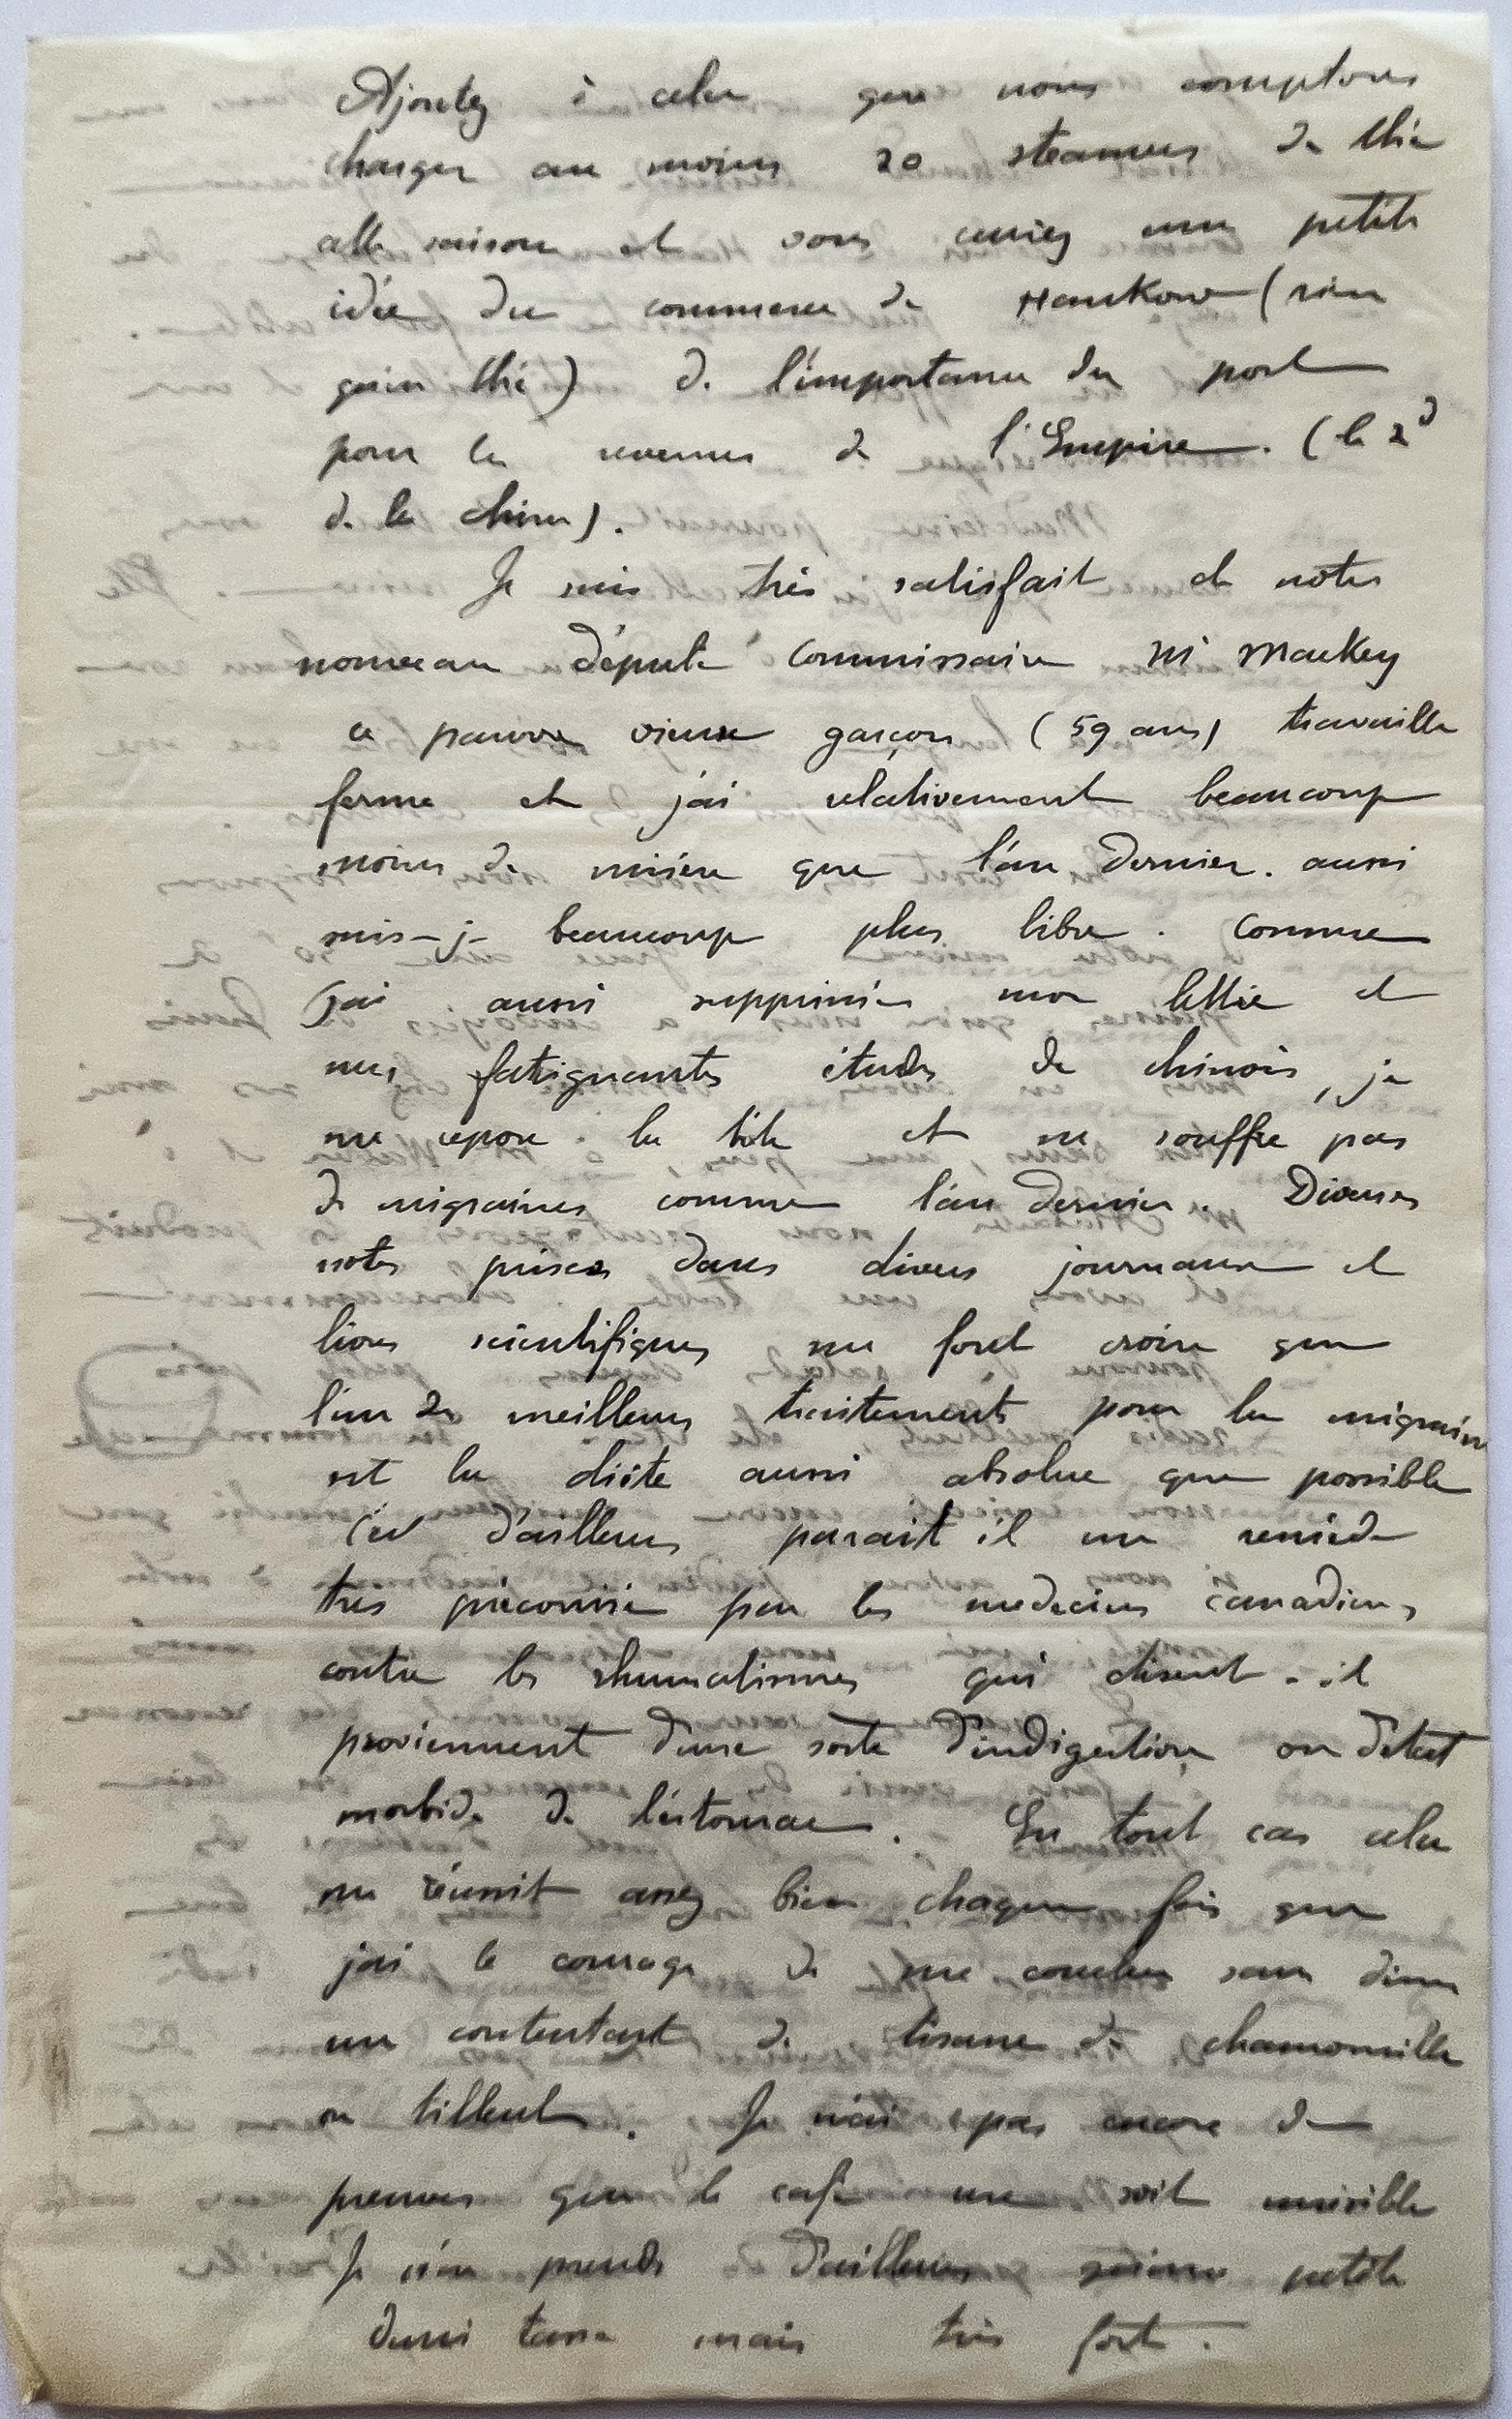 Ajoutez à cela que nous comptons
charger au moins 20 steamers de thé
cette saison et vous aurez une petite
idée du commerce de Hankow (rien
qu'en thé) de l'importance du port
pour les revenus de l'Empire. (le 2d
de la chine).
Je suis très satisfait de notre
nouveau député commissaire Mr Mackey
ce pauvre vieux garçon (59 ans) travaille
ferme et j'ai relativement beaucoup
moins de misère que l'an dernier. aussi
suis-je beaucoup plus libre. Comme
j'ai aussi supprimé mon lettré et
mes fatigantes études de chinois, je
me repose la tête et ne souffre pas
de migraines comme l'an dernier. Diverses
notes prises dans divers journaux et
livres scientifiques me font croire que
l'un des meilleurs traitements pour la migraine
est la diète aussi absolue que possible
c'est d'ailleurs parait il un remède
très préconisé par les medecins canadiens
contre les rhumatismes qui disent-il
proviennent d'une sorte d'indigestion ou d'état
morbide de l'estomac. En tout cas cela
me réussit assez bien chaque fois que
j'ai le courage de me coucher sans diner
me contentant de tisane de chamomille
ou tilleul. Je n'ai pas encore de
preuves que le café me soit nuisible
Je n'en prends d'ailleurs qu'une petite
demi tasse mais très fort.